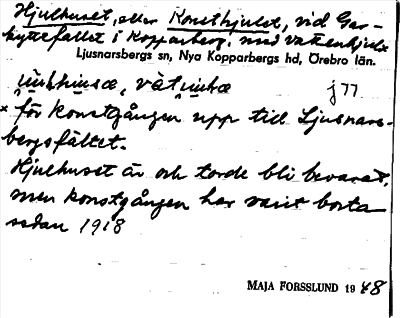 Hjulhuset, eller Konsthjulet, vid Gar-
kyttefallet i Kopparberg, med vattenhjul
Ljusnarsbergs sn, Nya Kopparbergs hd, Örebro län.
j 77
x för konstgången upp till Ljusnars-
bergsfältet.
Hjulhuset är och torde bli bevarat,
men konstgången har varit borta
sedan 1918
MAJA FORSSLUND 1948